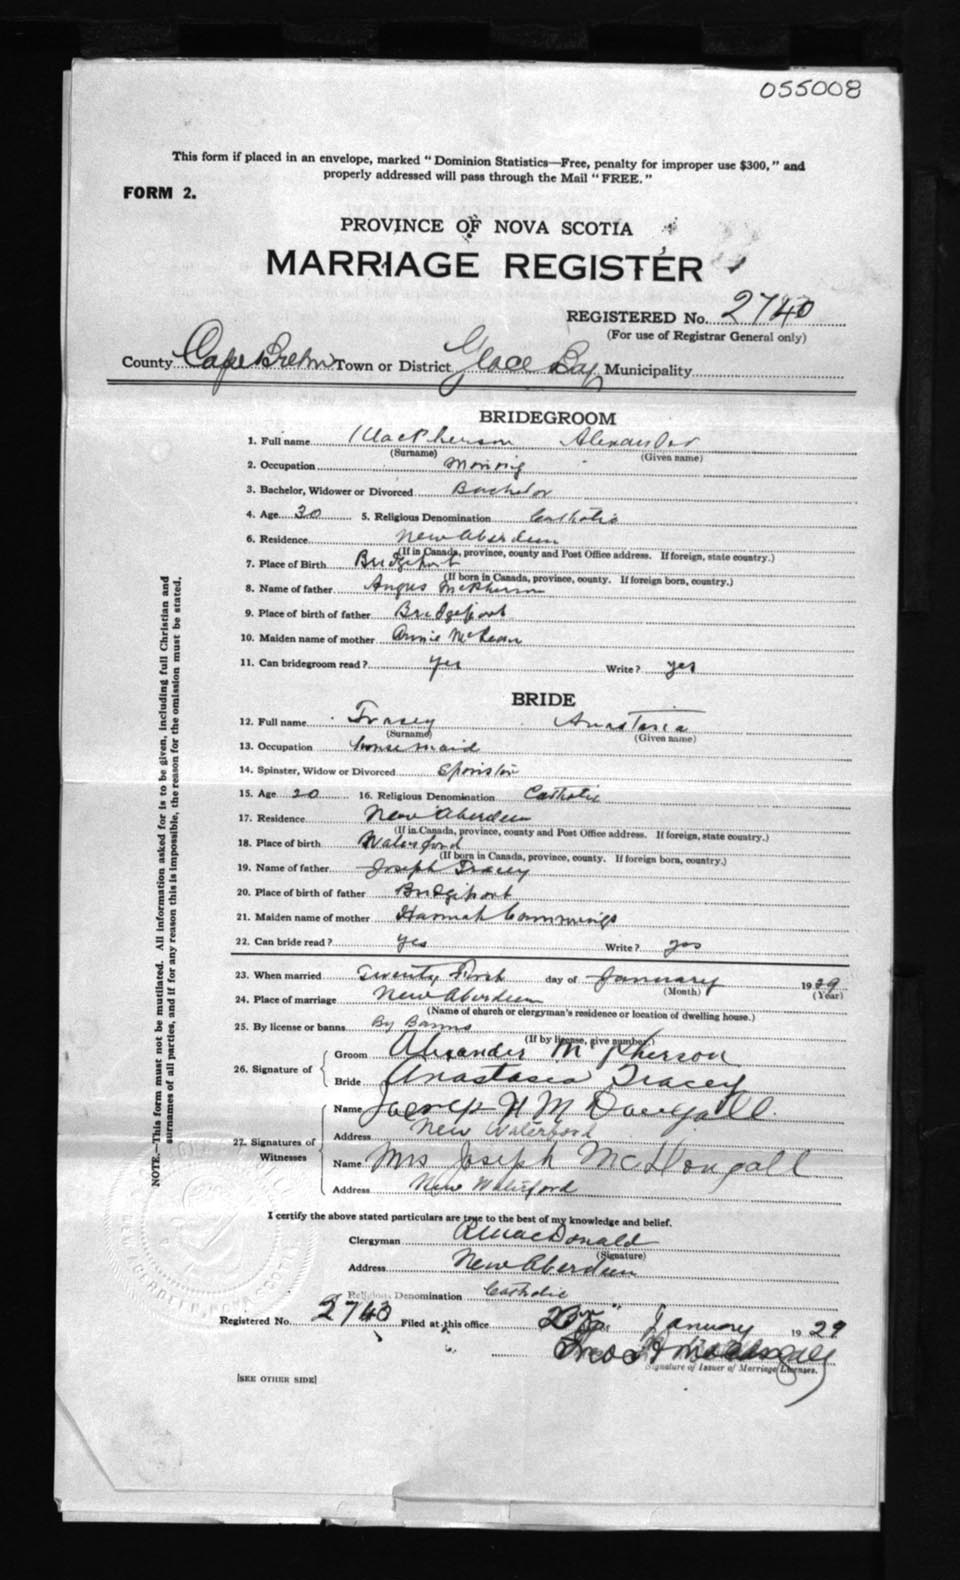 055008
This form if placed in an envelope, marked "Dominion Statistics—Free, penalty for improper use $300," and
properly addressed will pass through the Mail "FREE."
FORM 2.
PROVINCE OF NOVA SCOTIA
MARRIAGE REGISTER
REGISTERED No. 2740
(For use of Registrar General only)
County Cape Breton Town or District Glace Bay Municipality
BRIDEGROOM
1. Full name MacPherson Alexander
(Surname) (Given name)
2. Occupation
3. Bachelor, Widower or Divorced Bachelor
4. Age 30 5. Religious Denomination Catholic
6. Residence New Aberdeen
(If in Canada, province, county and Post Office address. If foreign, state country.)
7. Place of Birth Bridgeport
(If born in Canada, province, county. If foreign born, country.)
8. Name of father Angus McPherson
9. Place of birth of father Bridgeport
10. Maiden name of mother Annie
11. Can bridegroom read? yes Write? yes
BRIDE
12. Full name Tracey Anastasia
(Surname) (Given name)
13. Occupation housemaid
14. Spinster, Widow or Divorced Spinster
15. Age 20 16. Religious Denomination Catholic
17. Residence New Aberdeen
(If in Canada, province, county and Post Office address. If foreign, state country.)
18. Place of birth Waterford
(If born in Canada, province, county. If foreign born, country.)
19. Name of father Joseph Tracey
20. Place of birth of father Bridgeport
21. Maiden name of mother Hannah Cummings
22. Can bride read? yes Write? yes
23. When married Twenty First day of January 1929
(Month) (Year)
24. Place of marriage New Aberdeen
(Name of church or clergyman's residence or location of dwelling house.)
25. By license or banns By Banns
(If by license, give number.)
26. Signature of
Groom Alexander McPherson
Bride Anastasia Tracey
27. Signatures of Witnesses
Name Joseph H McDougall
Address New Waterford
Name Mrs Joseph McDougall
Address New Waterford
I certify the above stated particulars are true to the best of my knowledge and belief.
Clergyman MacDonald
(Signature)
Address New Aberdeen
Religious Denomination Catholic
Registered No. 2740 Filed at this office January 1929
Signature of Issuer of Marriage Licenses.
[SEE OTHER SIDE]
NOTE.—This form must not be mutilated. All information asked for is to be given, including full Christian and
surnames of all parties, and if for any reason this is impossible, the reason for the omission must be stated.